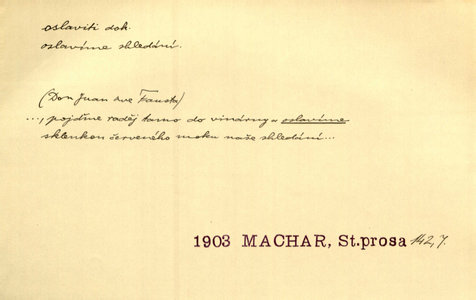 oslaviti dok.
oslavíme shledání.
(Don Juan a Faust)
..., pojďme raděj tamo do vinárny a oslavíme
sklenkou červeného moku naše shledání...
1903 MACHAR, St.prosa 142,7.